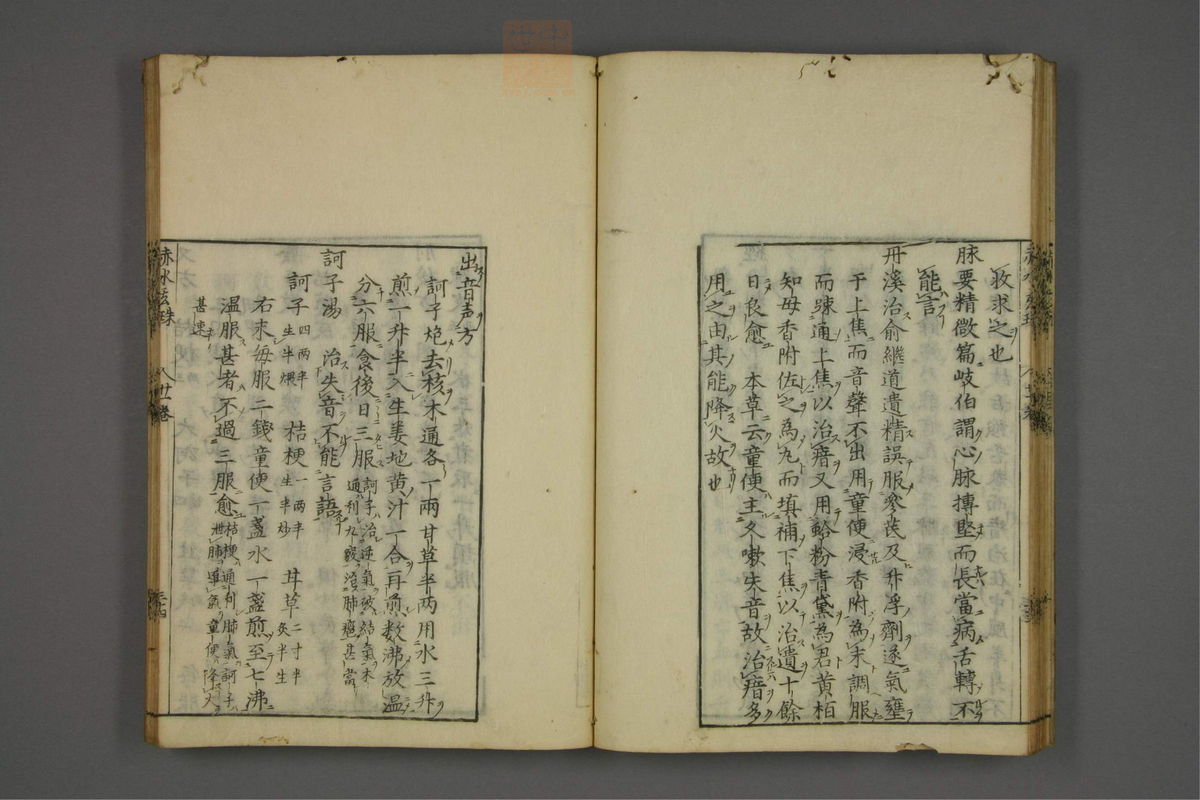 救求之也
脉要精微篇岐伯謂心脉摶堅而長當病舌轉不
能言
丹溪治俞繼道遺精誤服參芪及升浮劑遂氣壅
于上焦而音聲不出用童便浸香附為末調服
而疎通上焦以治瘖又用蛤粉青黛為君黄柏
知母香附佐之為丸而填補下焦以治遺十餘
日良愈 本草云童便主久嗽失音故治瘖多
用之由其能降火故也
出音声方
訶子炮去核木通各一兩甘草半两用水三升
煎一升半入生姜地黄汁一合再煎数沸放温
分六服食後日三服訶子治逆氣破結氣木
通利九竅治肺壅甚當
訶子湯 治失音不能言語
訶子四两半生半煨 桔梗一两半生半炒 甘草二寸半炙半生
右末每服二錢童便一盞水一盞煎至七沸
温服甚者不過三服愈桔梗通利肺氣訶子
泄肺導氣童便降火
甚速
赤水玄珠 八 廿卷